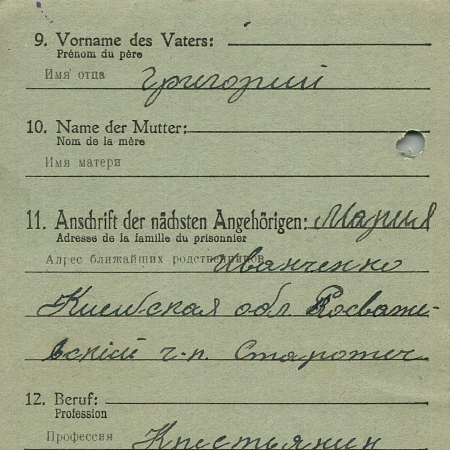 9. Vorname des Vaters:
Prénom du père
Имя отца Григорий
10. Name der Mutter:
Nom de la mère
Имя матери
11. Anschrift der nächsten Angehörigen: Мария
Adresse de la famille du prisonnier
Адрес ближайших родственников Иванченко
Киевская обл Росваже-
вский
12. Beruf:
Profession
Профессия Крестьянин